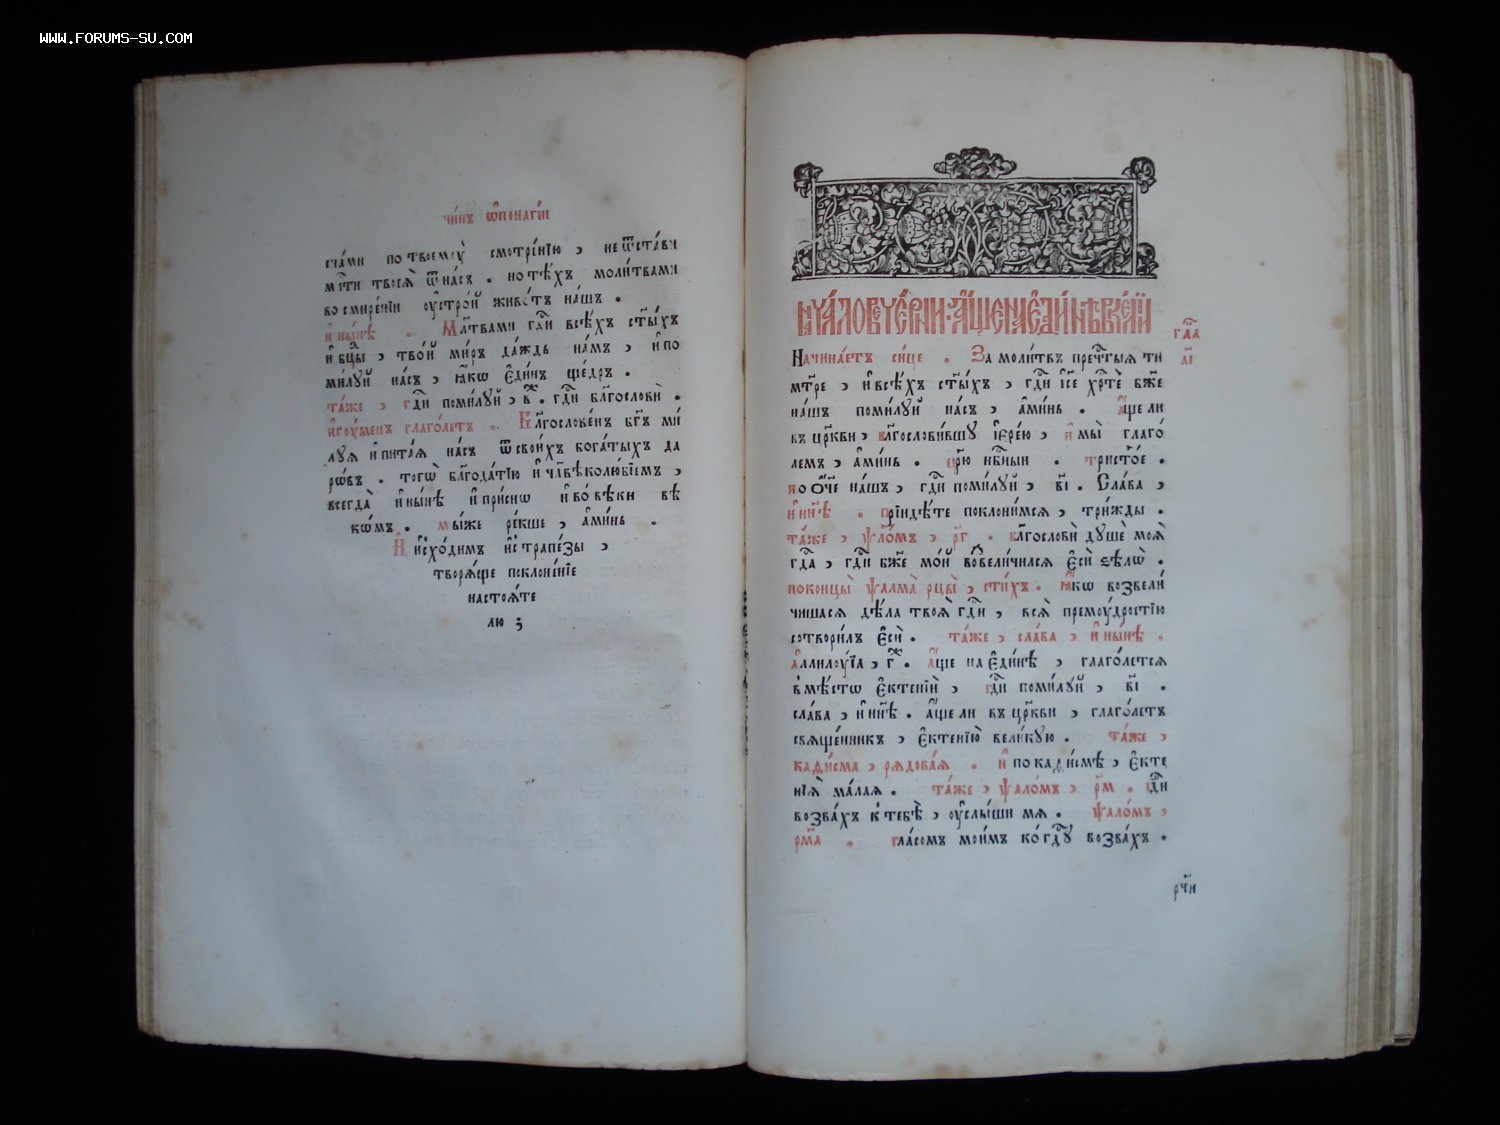 WWW.FORUMS-SU.COM
чи́нъ ѡ҆ понагі́и
с на́ми по твоемꙋ̀ смотре́нїю, не ѿста́ви
мл҇ти твоеѧ̀ ѿ на́съ. но тѣ́хъ моли́твами
во смире́нїи ᲂу҆стро́й живо́тъ на́шъ.
и҆ ны́нѣ. Мл҃твами гд҇и всѣ́хъ ст҃ы́хъ
и҆ бцы, тво́й ми́ръ да́ждь на́мъ, и҆ по
ми́лꙋй на́съ, ꙗ҆́кѡ є҆ди́нъ ще́дръ.
та́же, гд҇и поми́лꙋй, в҃. гд҇и бл҃гословѝ.
и҆гꙋ́менъ глаго́летъ. Бл҃гослове́нъ бг҃ъ ми́
лꙋѧ и҆ пита́ѧ на́съ ѿ свои́хъ бога́тыхъ да
рѡ́въ. тогѡ̀ бл҃года́тїю и҆ чл҃вѣколю́бїемъ,
всегда̀ и҆ ны́нѣ и҆ при́снѡ и҆ во́ вѣки вѣ
кѡ́мъ. мы́же ре́кше, а҆ми́нь.
И҆ и҆схо́димъ и҆с трапе́зы,
творѧ́ще поклоне́нїе
настоѧ́те
лю;
нача́ло вече́рни. а҆́ще на є҆ди́нѣ в ке́лїи
гла
а҃і
Начина́етъ си́це. За моли́твъ преч҇тыѧ ти
мт҃ре, и҆ всѣ́хъ ст҃ы́хъ, гд҇и і҆с҃е хр҇тѐ бж҃е
на́шъ поми́лꙋй на́съ, а҆ми́нь. а҆́ще ли
въ цр҃кви, бл҃гослови́вшꙋ і҆ере́ю, и҆ мы̀ глаго́
лемъ, а҆ми́нь. цр҃ю̀ нб҇ныи. трист҃о́е.
по ѻ҆́ч҃е на́шъ, гд҇и поми́лꙋй, в҃і. Сла́ва,
и҆ нн҃ѣ. прїиди́те поклони́мсѧ, три́жды.
та́же, ѱало́мъ, р҃г. бл҃гословѝ дꙋшѐ моѧ̀
гд҇а, гд҇и бж҃е мо́й возвели́чилсѧ є҆сѝ ѕѣлѡ̀.
по концы̀ ѱалма̀ рцы̀, сти́хъ. ꙗ҆́кѡ возвели́
чишасѧ дѣла̀ твоѧ̀ гд҇и, всѧ̀ премꙋ́дростїю
сотвори́лъ є҆сѝ. та́же, сла́ва, и҆ ны́нѣ.
а҆ллилꙋ́їа, г҃. а҆́ще на є҆ди́нѣ, глаго́летсѧ
в мѣ́стѡ є҆ктенїѝ, гд҇и поми́лꙋй, в҃і.
сла́ва, и҆ нн҃ѣ. а҆́ще ли въ цр҃кви, глаго́летъ
свѧще́нникъ, є҆ктенїю̀ вели́кꙋю. та́же,
каѳи́сма, рѧдова́ѧ. и҆ по каѳи́смѣ, є҆кте
нїѧ̀ ма́лаѧ. та́же, ѱало́мъ, р҃м. гд҇и
возва́хъ к тебѣ̀, ᲂу҆слы́ши мѧ. ѱало́мъ,
рм҃а. гла́сомъ мои́мъ ко́ гд҇ꙋ возва́хъ.
рч҃и